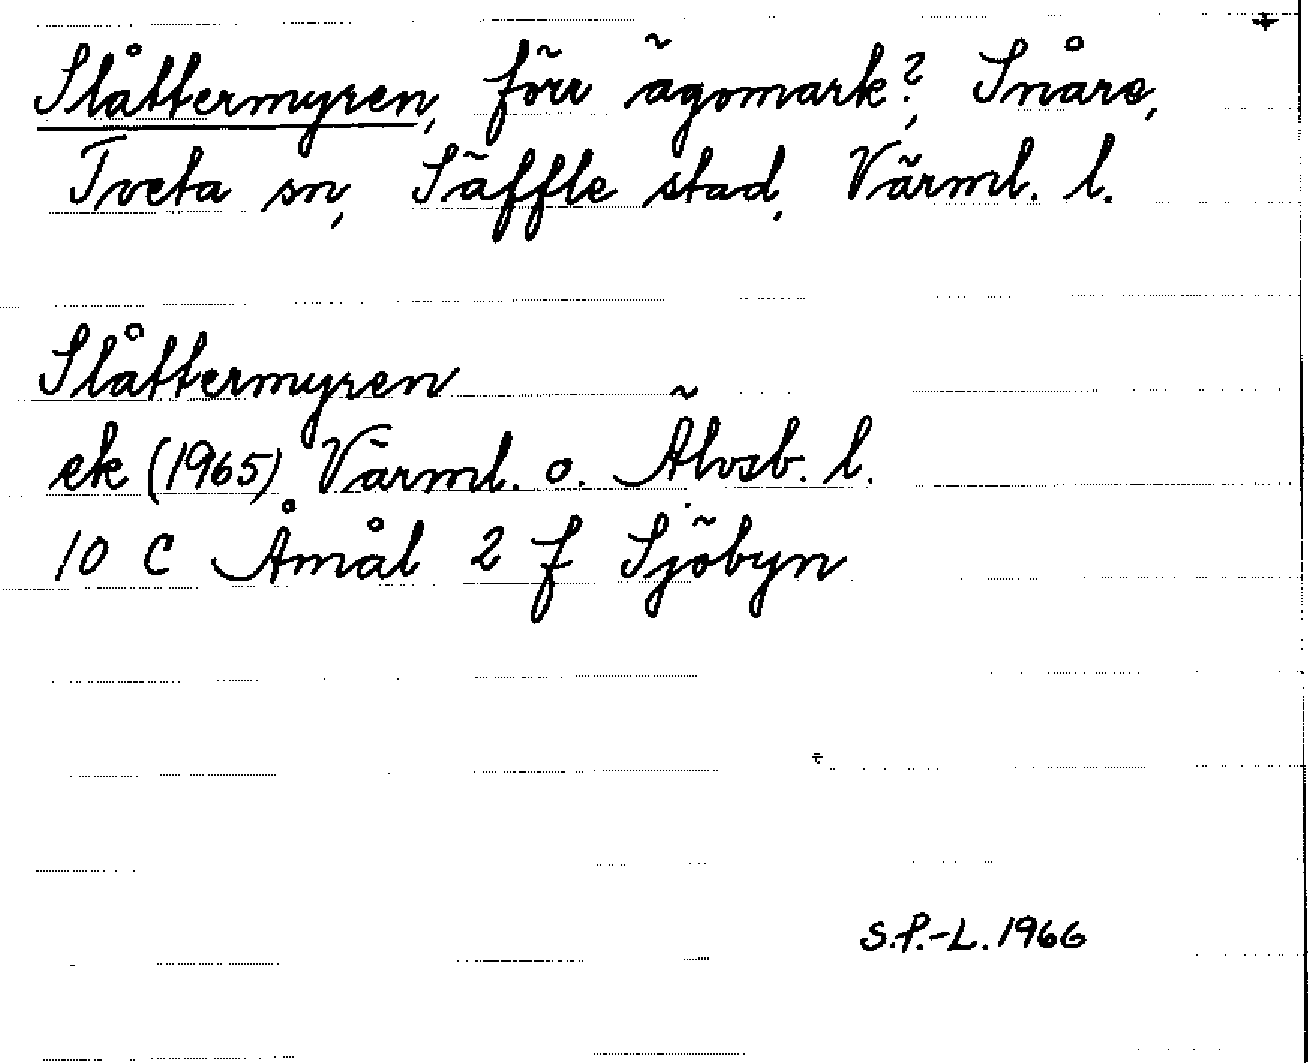 Slåttermyren, förr ägomark?, Snåre,
Tveta sn, Säffle stad, Värml. l.
Slåttermyren
ek (1965) Värml. o. Älvsb. l.
10 C Åmål 2 f Sjöbyn
S.P.-L. 1966